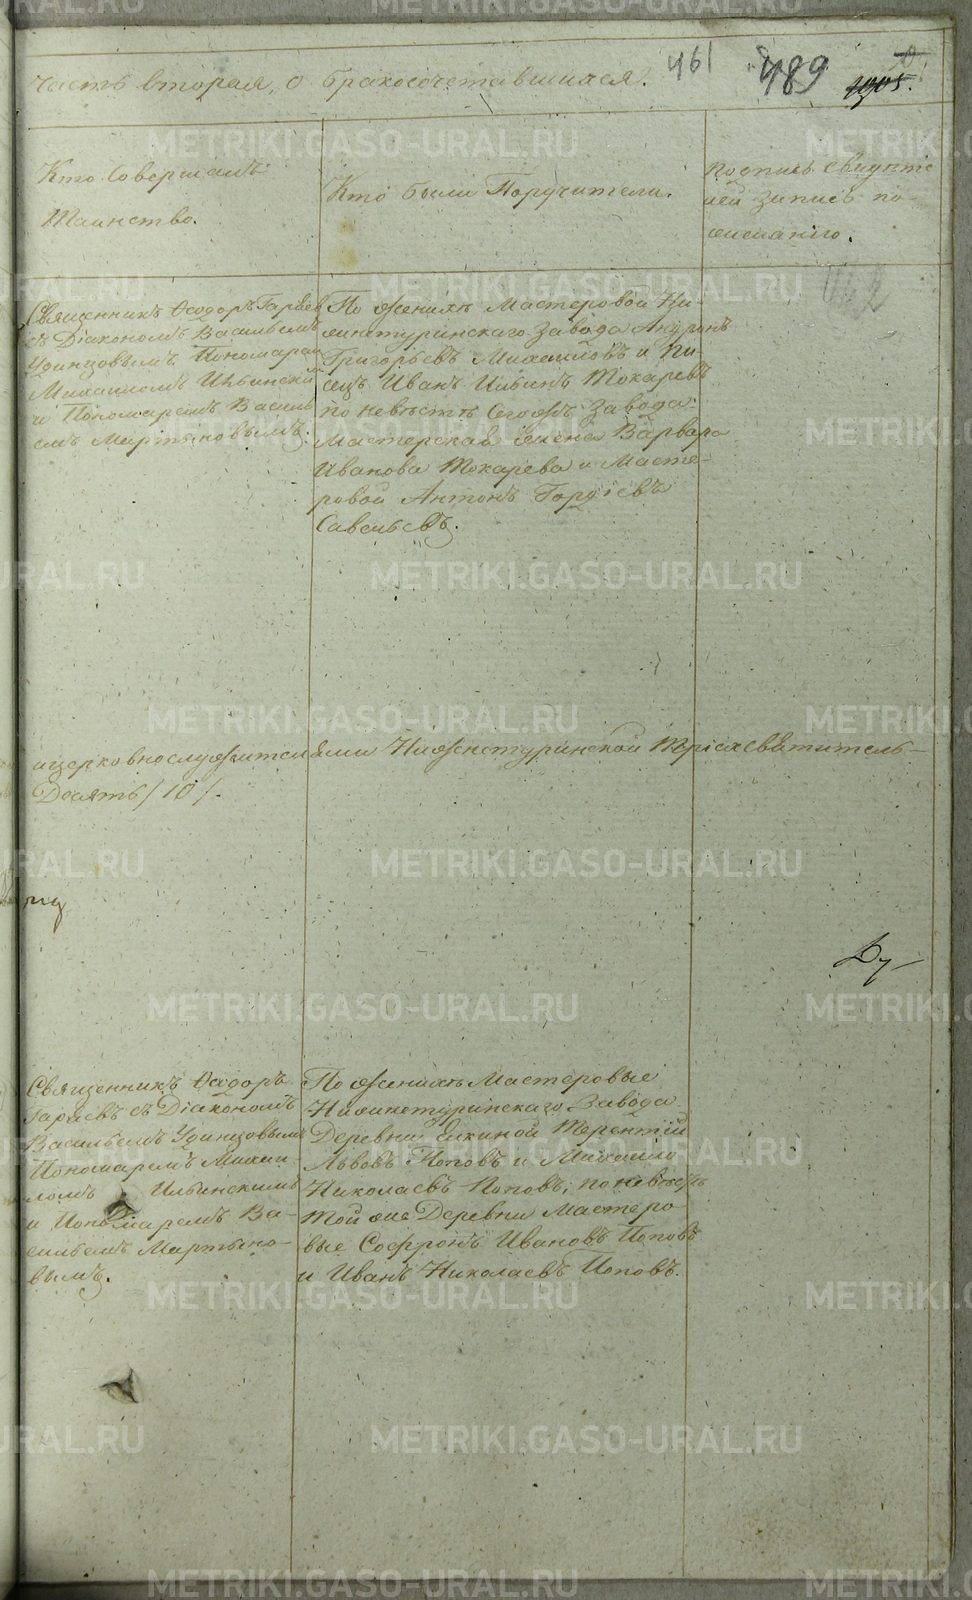 Часть вторая, о бракосочетавшихся.
461
489
1905.
Кто совершалъ
Таинство.
Кто были Поручители.
Подпись свидѣте
лей запись по
желанію.
Священникъ Ѳеодоръ Гаряев
съ Діакономъ Васильемъ
Удинцовымъ Пономарем
Михаиломъ Ильинским
и Пономаремъ Василь
емъ Мартыновымъ.
По женихѣ Мастеровой Ни-
жнетуринскаго завода
Григорьевъ Михаиловъ и Пи
сецъ Иванъ Ильинъ Токаревъ
по невѣстѣ сегожъ завода
Мастерская жена Варвара
Иванова Токарева и Масте-
ровой Антонъ Гордіевъ
Савельевъ.
и церковнослужителями Нижнетуринской Трїехсвятитель-
Десять /10/.
Священникъ Ѳеодоръ
Гаряевъ съ Діакономъ
Васильемъ Удинцовымъ
Пономаремъ Михаи-
ломъ Ильинскимъ
и Пономаремъ Ва-
сильемъ Мартыно-
вымъ.
По женихѣ Мастеровые
Нижнетуринскаго Завода
Деревни Елкиной Терентій
Львовъ Поповъ и Михаило
Николаевъ Поповъ; по невѣстѣ
той же Деревни Мастеро
вые Софронъ Ивановъ Поповъ
и Иванъ Николаевъ Поповъ.
METRIKI.GASO-URAL.RU